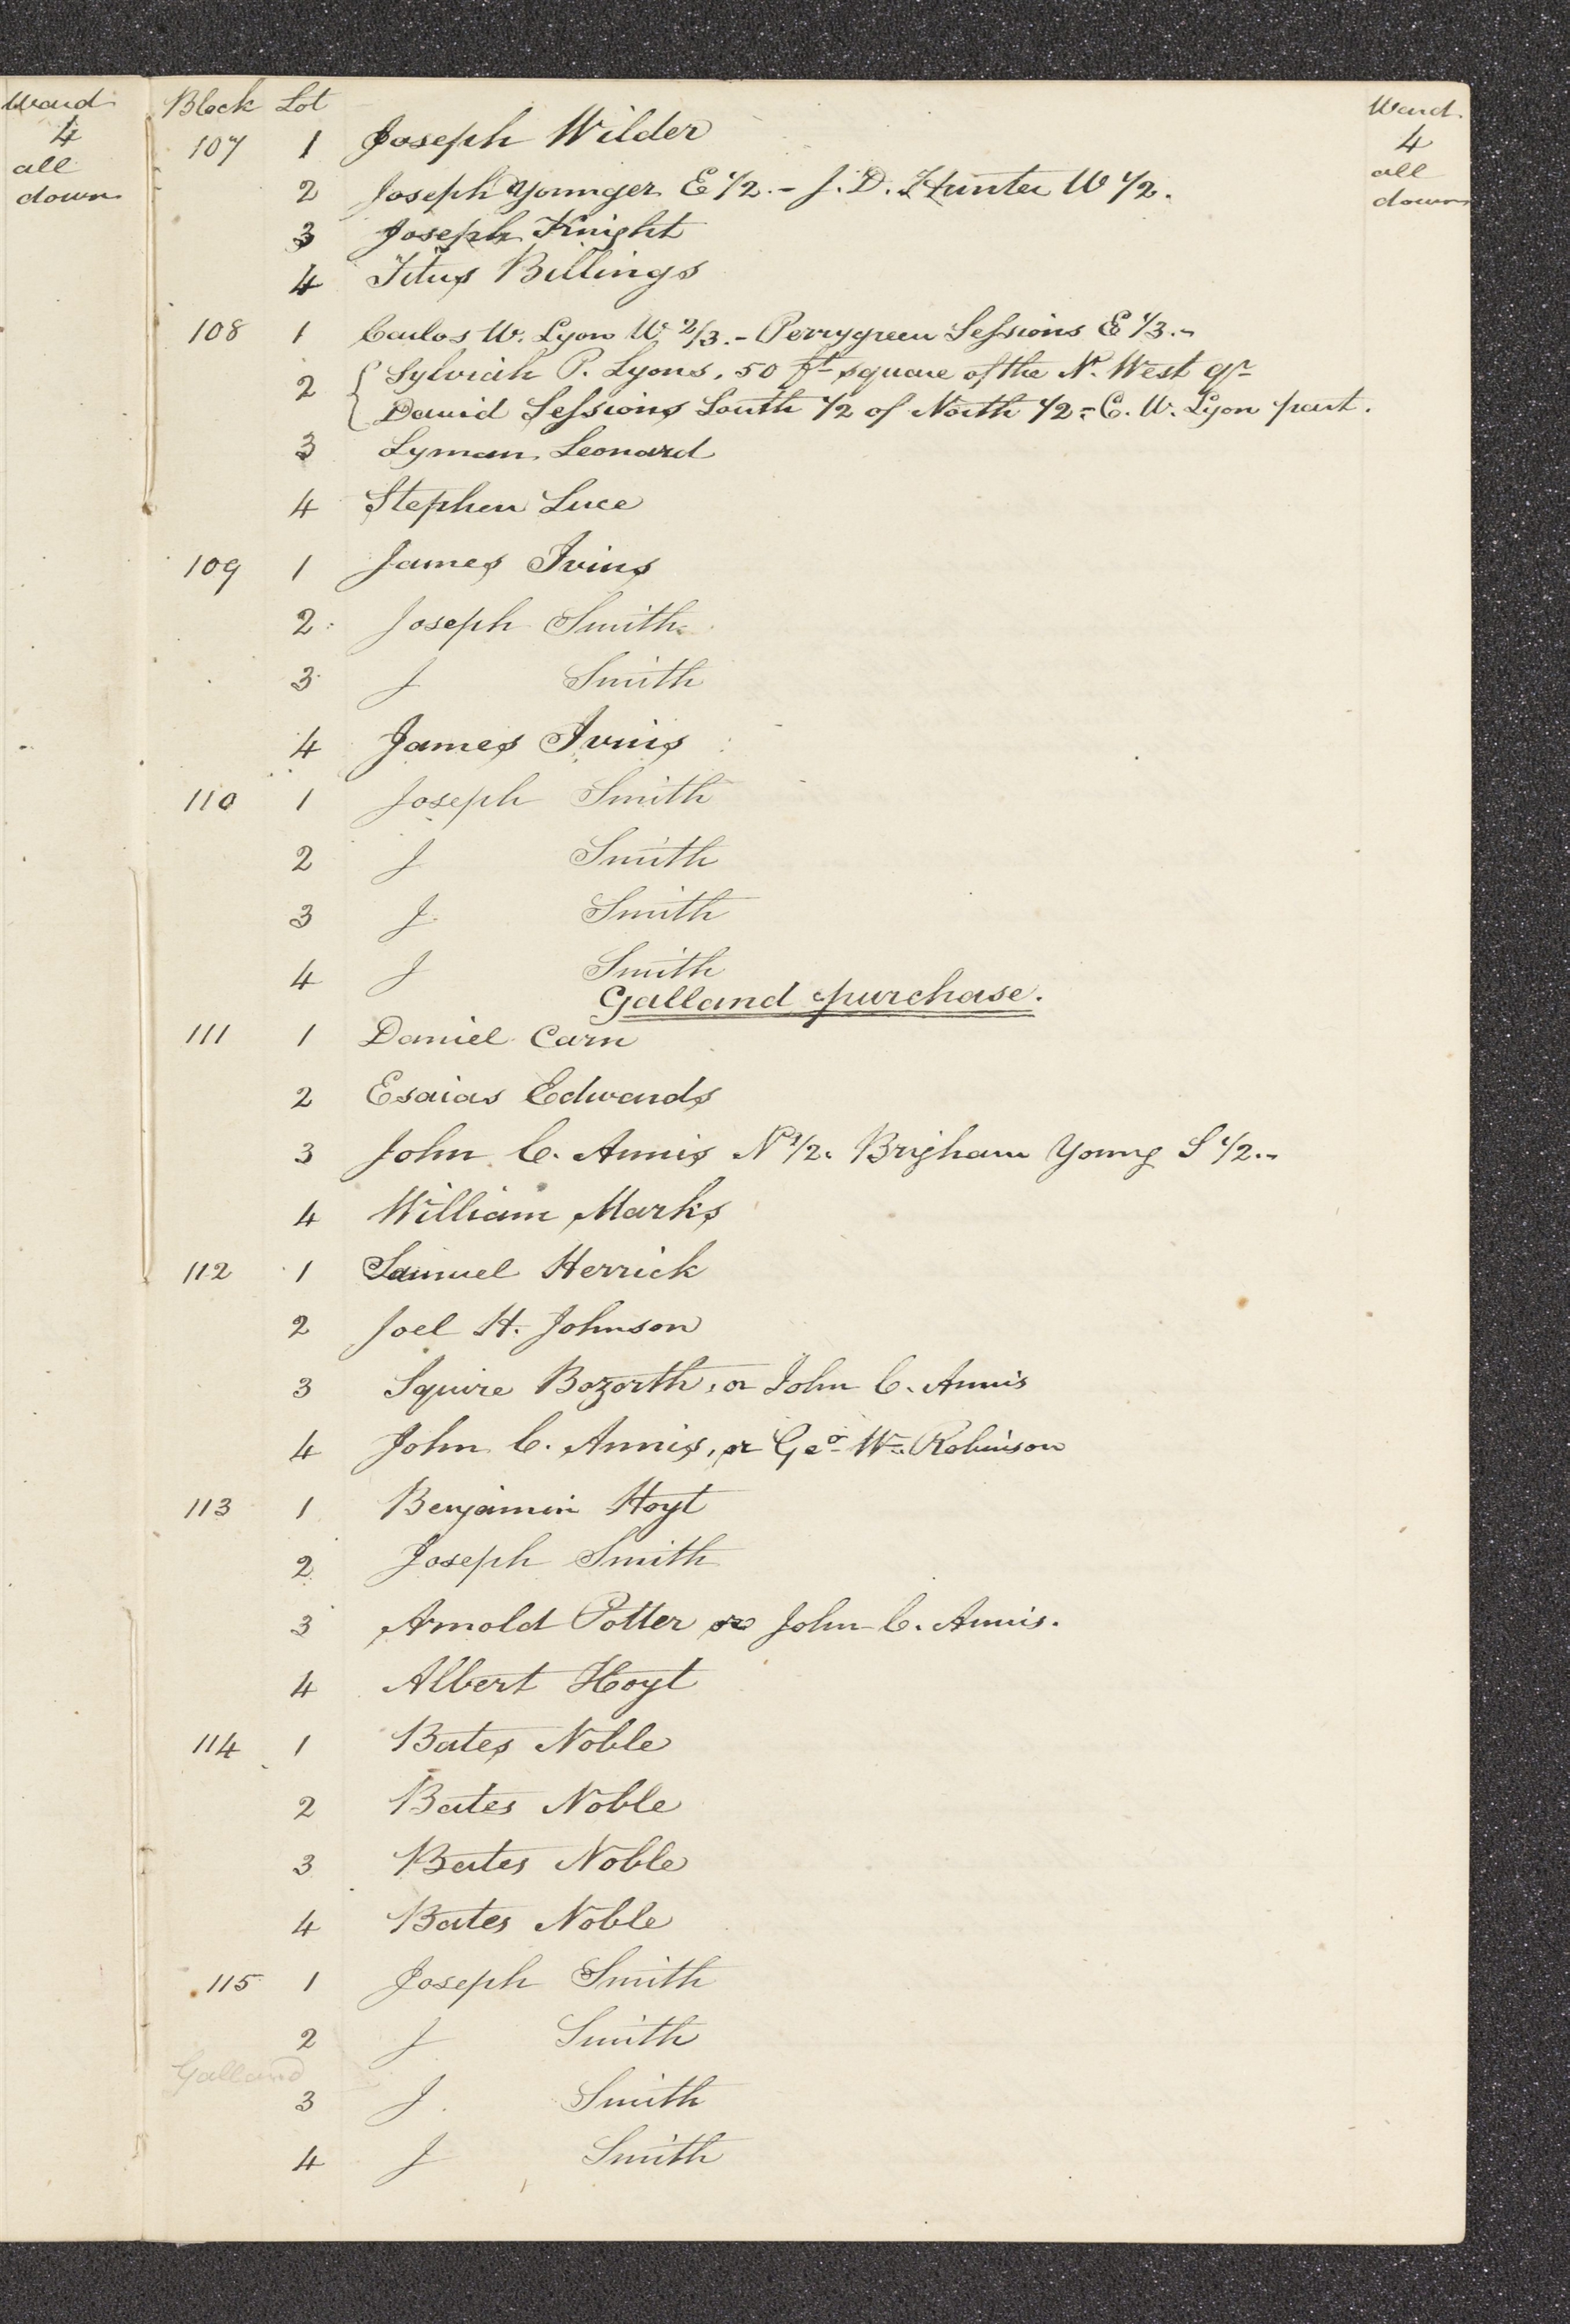 Ward
4
all
down
Block Lot Ward.
107 1 Joseph Wilder 4
all
down
2 Joseph Younger E 1/2. - J. D. Hunter W 1/2.
3 Joseph Knight
4 Titus Billings
108 1 Carlos W. Lyon W. 2/3. - Perrygreen Sessions E 1/3.-
2 { Sylviah P. Lyons, 50 ft square of the N. West qr
David Sessions South 1/2 of North 1/2 - C. W. Lyon part.
3 Lyman Leonard
4 Stephen Luce
109 1 James Ivins
2 Joseph Smith
3 J Smith
4 James Ivins
110 1 Joseph Smith
2 J Smith
3 J. Smith
4 J Smith
Galland purchase.
111 1 Daniel Carn
2 Esaias Edwards
3 John C. Annis N 1/2. Brigham Young S 1/2.-
4 William Marks
112 1 Samuel Herrick
2 Joel H. Johnson
3 Squire Bozorth, or John C. Annis
4 John C. Annis, or Geo. W. Robinson
113 1 Benjamin Hoyt
2 Joseph Smith
3 Arnold Potter or John C. Annis.
4 Albert Hoyt
114 1 Bates Noble
2 Bates Noble
3 Bates Noble
4 Bates Noble
115 1 Joseph Smith
2 J Smith
Galland
3 J. Smith
4 J Smith